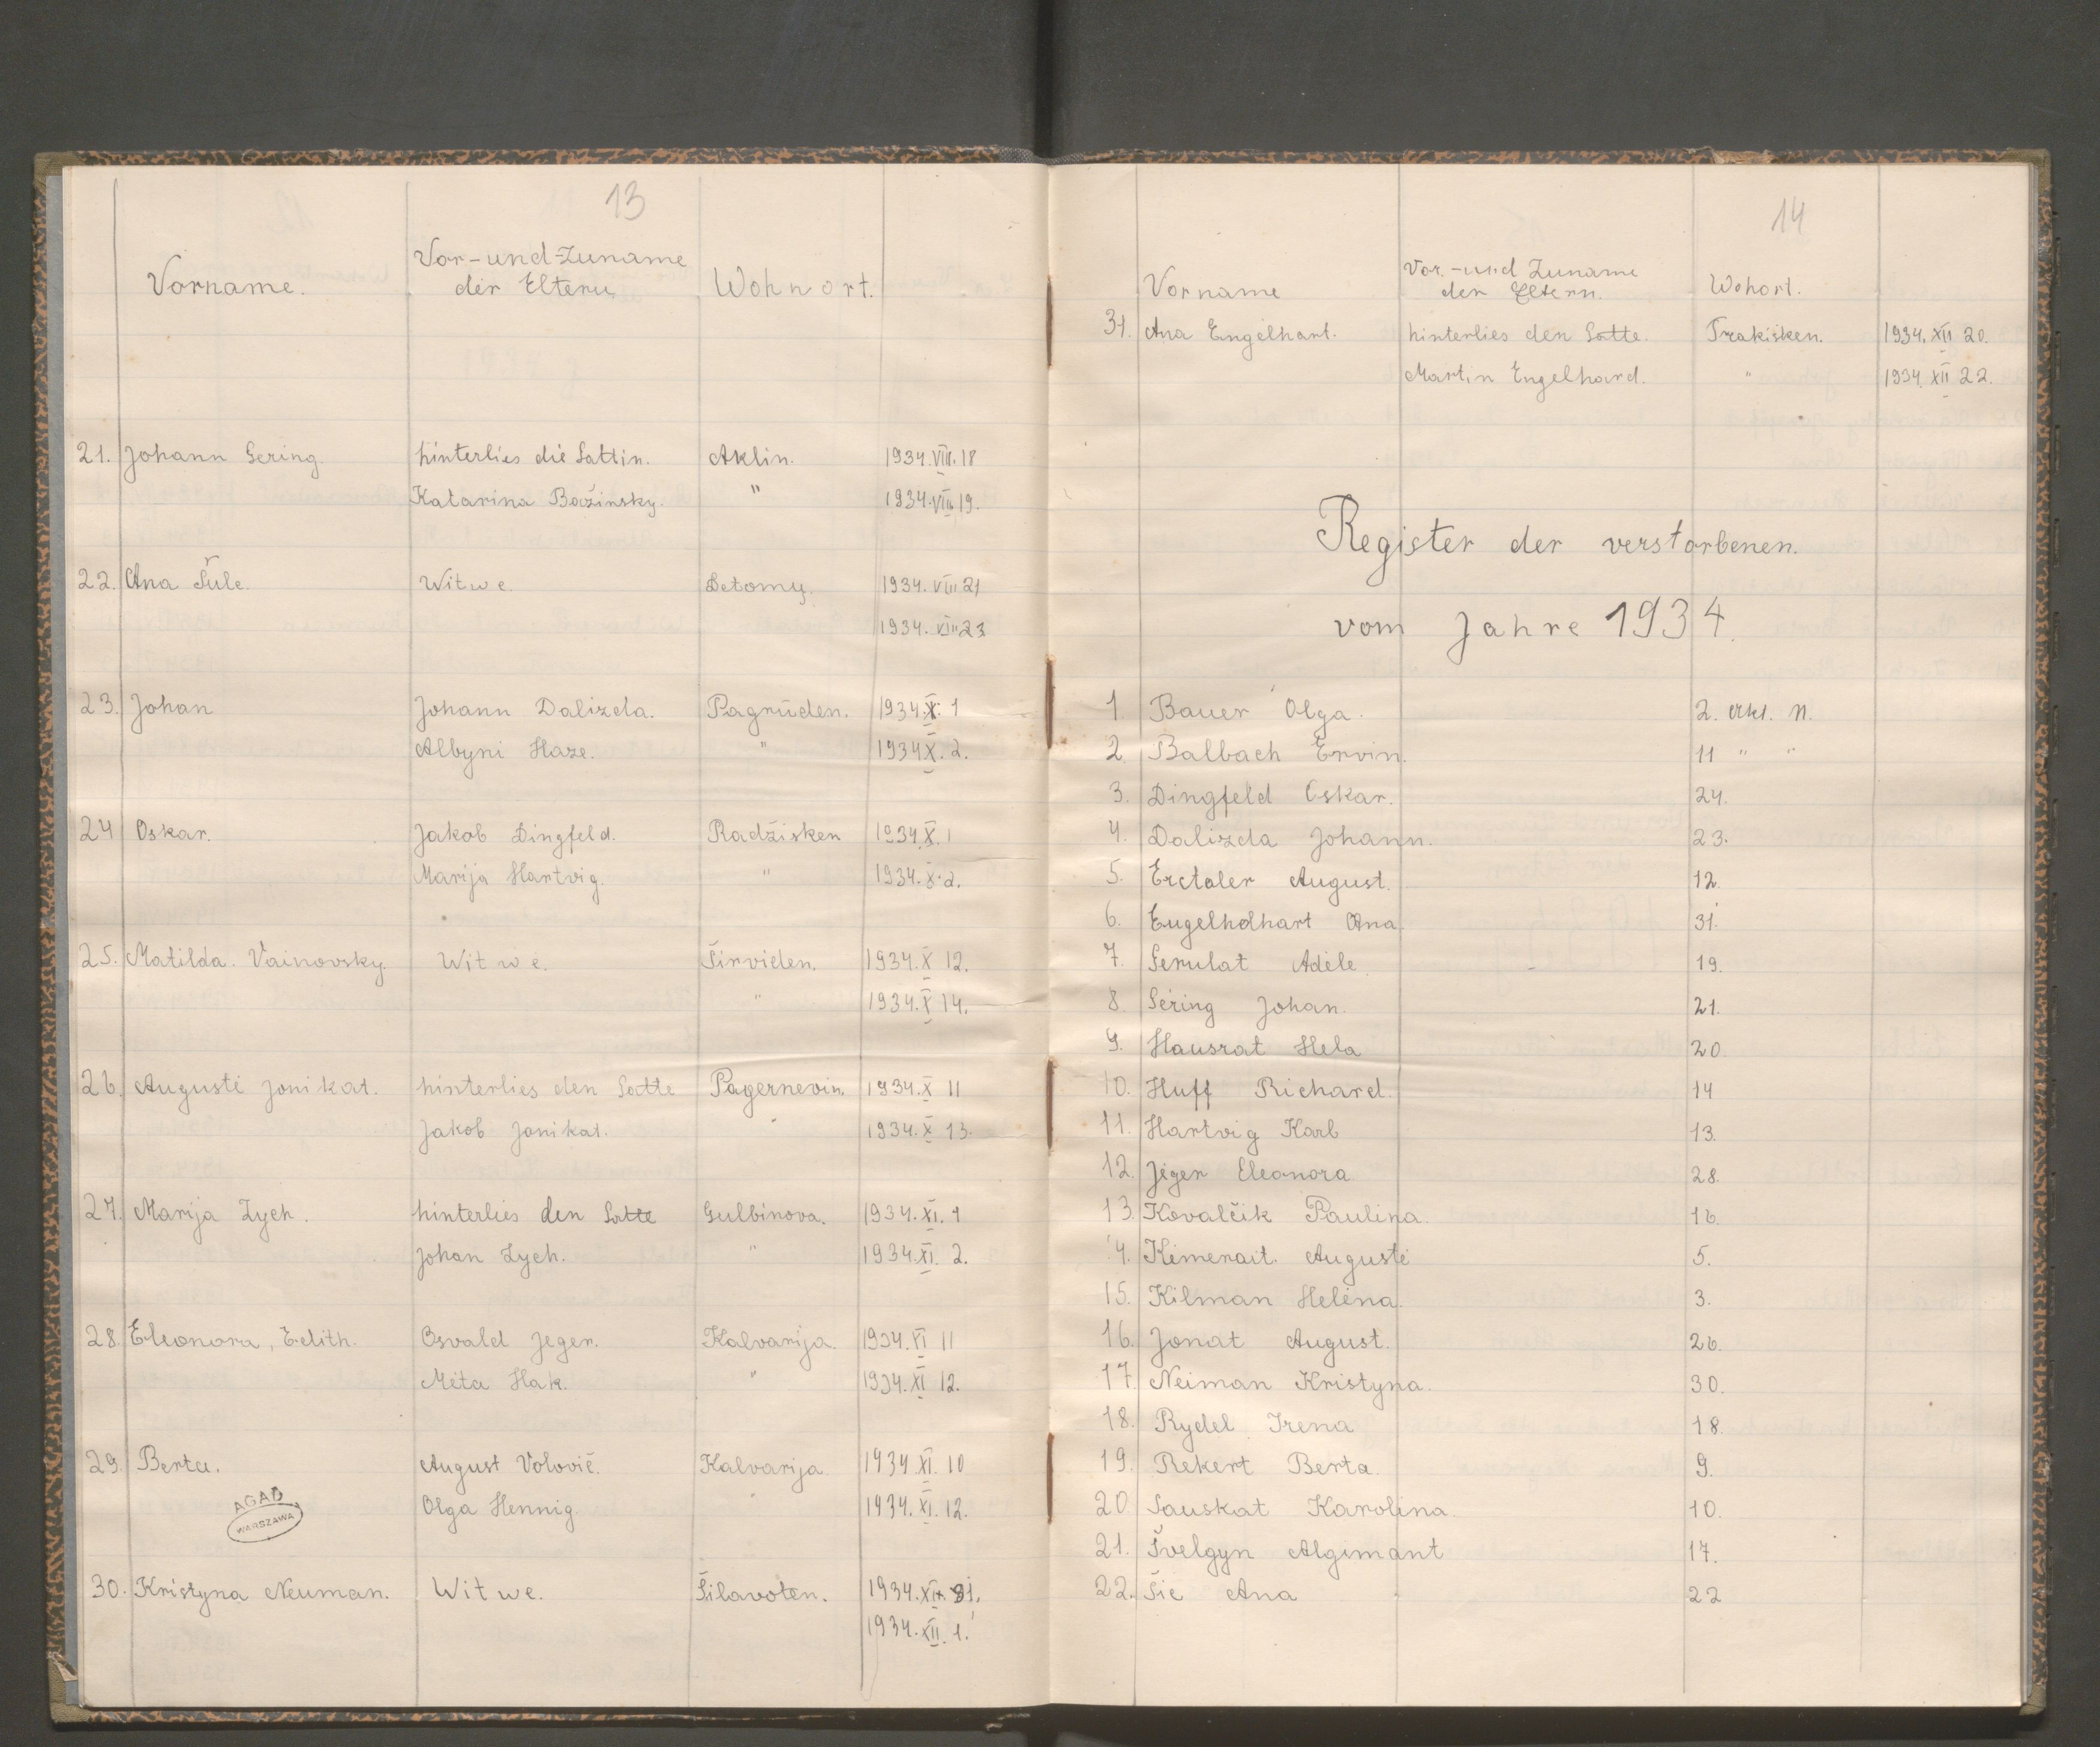 13
Vorname. Vor-und-Zuname der Eltern Wohnort.
21. Johann Gering. hinterlies die Gattin. Aklin. 1934.VIII.18
Katarina Bažinsky. " 1934.VIII 19.
22. Ana Šule. Witwe. 1934. VIII 21
1934. VIII 23
23. Johan Johann Dalizda. Pagrūden. 1934.X. 1
Albyni Haze. " 1934 X. 2.
24 Oskar. Jakob Dingfeld. Radžisken 1934.X. 1
Marija Hartvig. " 1934.X.2.
25. Matilda. Vainovsky. Witwe. Širviden. 1934.X 12.
" 1934.X 14.
26. Augusti Jonikat. hinterlies den Gatte Pagernevin. 1934.X 11
Jakob Jonikat. " 1934.X 13.
27. Marija Zych. hinterlies den Gatte Gulbinova. 1934.XI. 1
Johan Zych. " 1934.XI. 2.
28. Eleonora, Edith. Osvald Jeger. Kalvarija. 1934.XI 11
Mėta Hak. " 1934.XI 12.
29. Berta. August Volovič. Kalvarija 1934 XI. 10
Olga Hennig. " 1934.XI.12.
AGAD
WARSZAWA
30. Kristyna Neuman. Witwe. Šilavoten.
1934.XII. 1.
14
Vorname Vor-und Zuname der Eltern. Wohort.
31. Ana Engelhart. hinterlies den Gatte. Trakišken. 1934. XII 20.
Martin Engelhard. " 1934. XII 22.
Register der verstorbenen.
vom Jahre 1934.
1. Bauer Olga. 2. akt. N.
2. Balbach Ervin. 11 " "
3. Dingfeld Oskar. 24.
4. Dalizda Johann. 23.
5. Erctaler August. 12.
6. Eugelhdhart Ana. 31.
7. Gerulat Adėle. 19.
8. Gering Johan. 21.
9. Hausrat Hela 20.
10. Huff Richard. 14
11. Hartvig Karl 13.
12. Jėger Eleonora 28.
13. Kovalčik Paulina. 16.
14. Kimerait. Augusti 5.
15. Kilman Helėna. 3.
16. Jonat August. 26.
17. Neiman Kristyna. 30.
18. Rydel Irena 18.
19. Rekert Berta. 9.
20. Sauskat Karolina. 10.
21. Švelgyn Algimant 17.
22. Ana 22